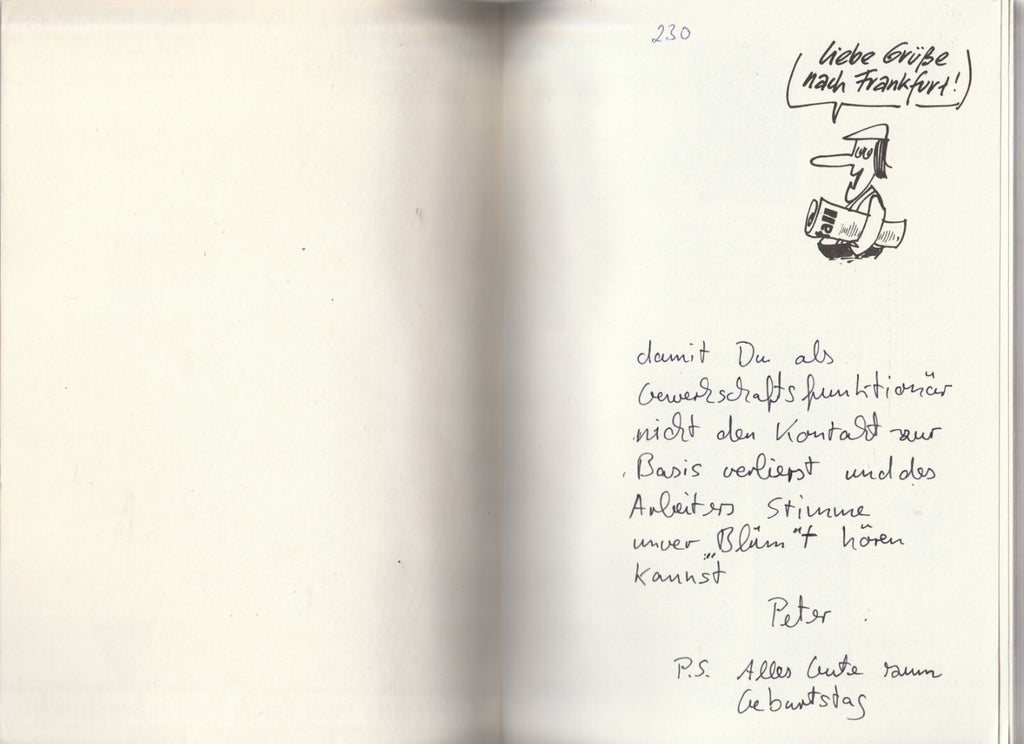 230
Liebe Grüße
nach Frankfurt!
damit Du als
Gewerkschaftsfunktionär
nicht den Kontakt zur
Basis verlierst und des
Arbeiters Stimme
unver „Blüm“t hören
kannst
Peter
P.S. Alles Gute zum
Geburtstag